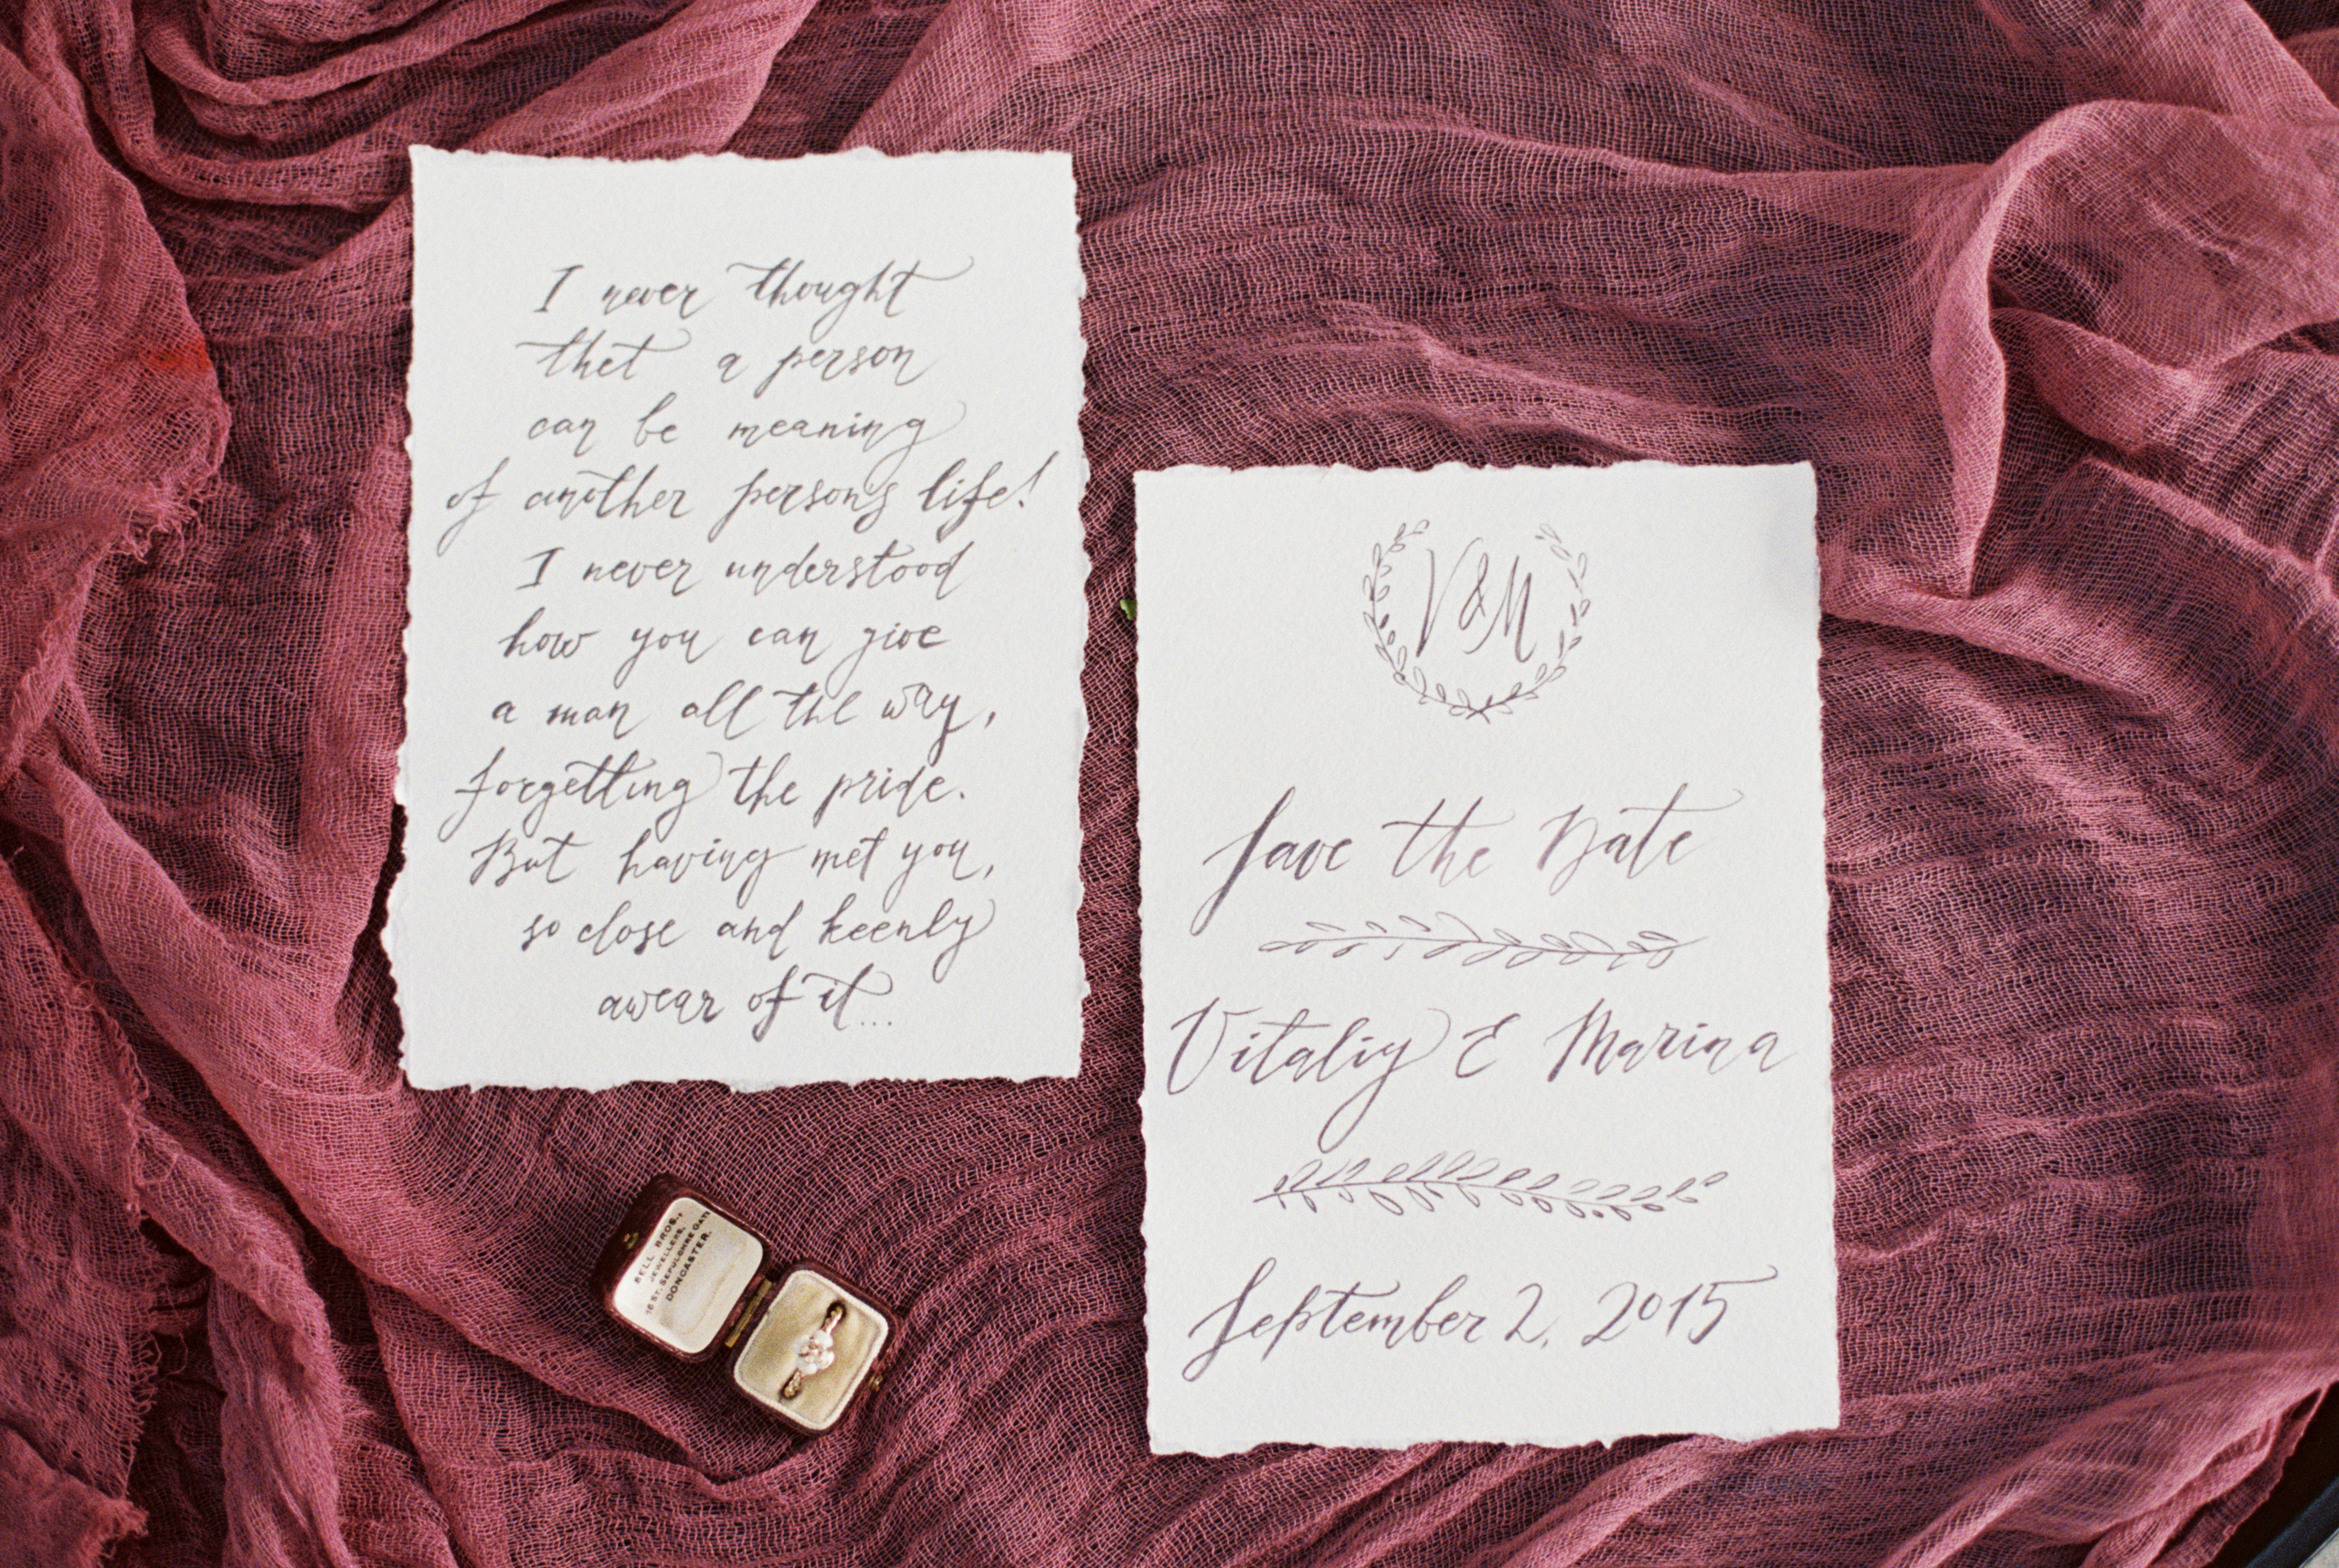 I never thought
thet a person
can be meaning
of another persons life!
I never understood
how you can give
a man all the way,
forgetting the pride.
But having met you,
so close and keenly
awear of it...
V&M
Save the Date
Vitaliy & Marina
September 2, 2015
BELL BROS.
JEWELLERS,
16 ST. SEPULCHRE GATE
DONCASTER.